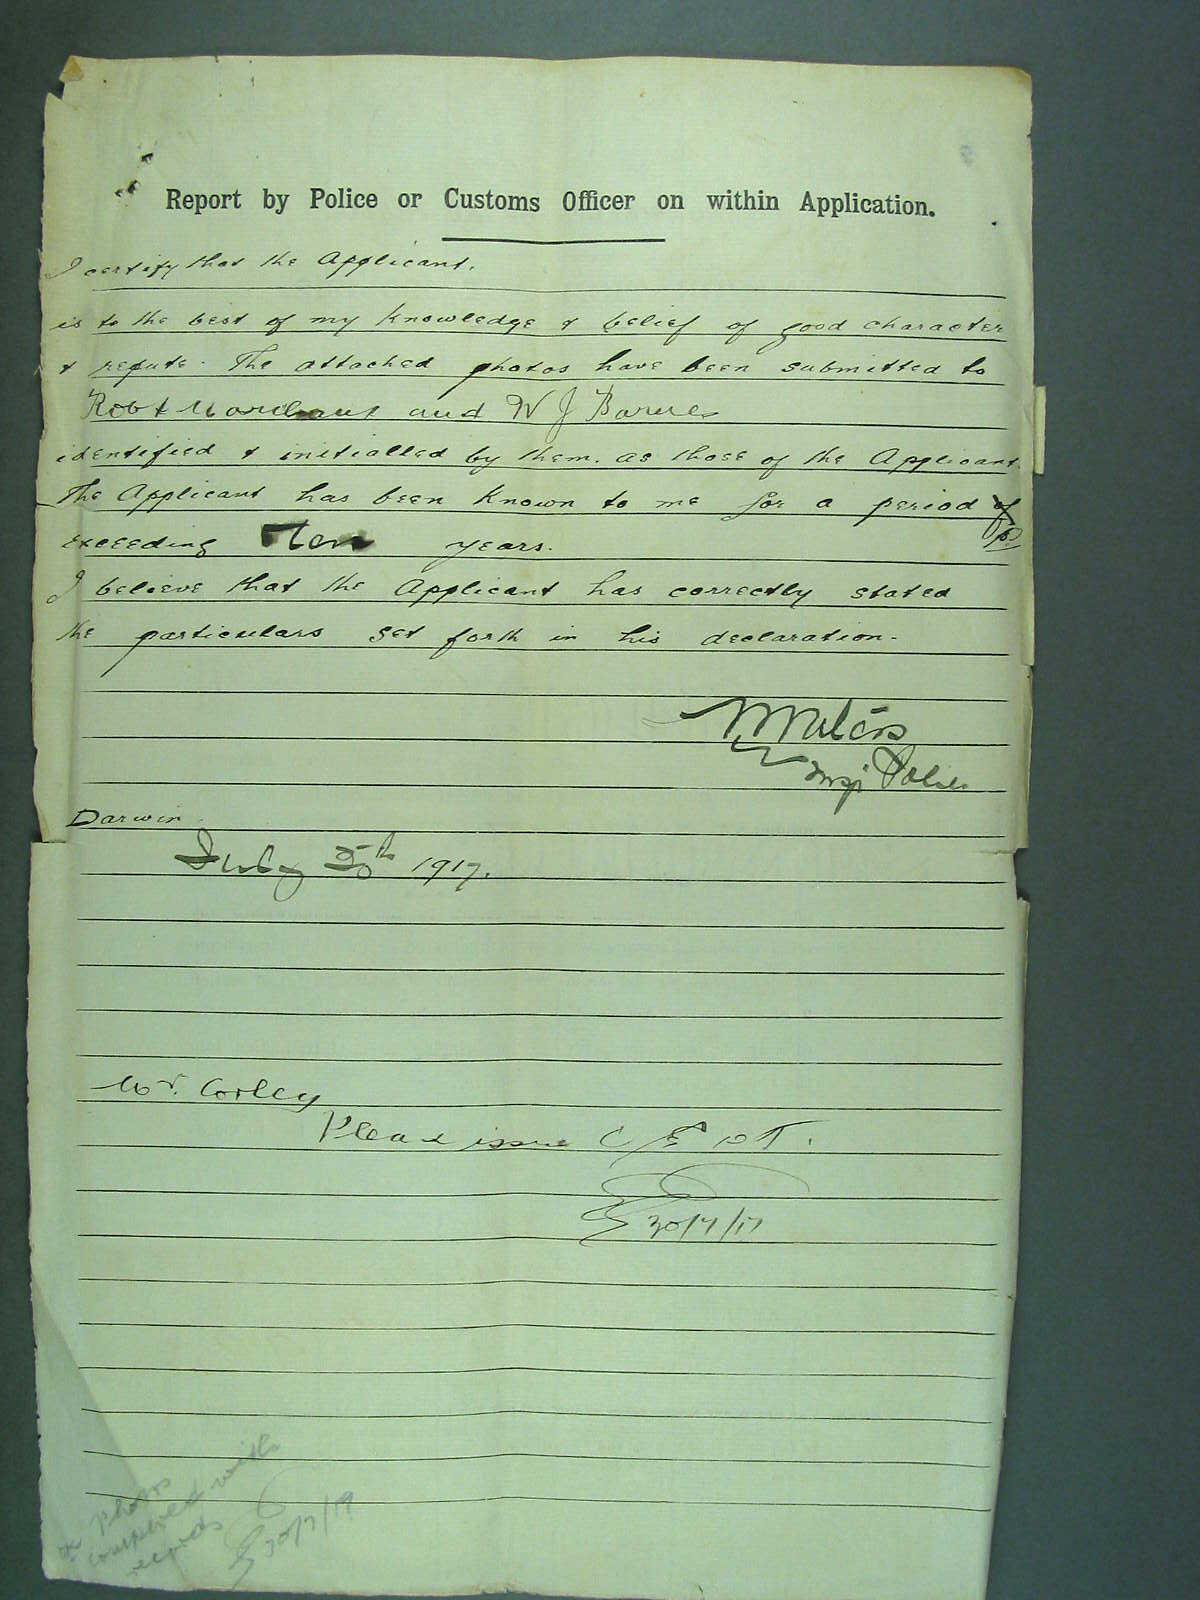 Report by Police or Customs Officer on within Application.
I certify that the Applicant.
is to the best of my knowledge & belief of good character
& repute. The attached photos have been submitted to
Robt and W J Barnes
identified & initialled by them. as those of the Applicant.
The Applicant has been known to me for a period of
exceeding Ten years.
I believe that the Applicant has correctly stated
the particulars set forth in his declaration.
Insp Police
Darwin.
July 30th 1917.
Mr. Corley
Please issue C E D T.
30/7/17
photos
compared with
records
30/7/17